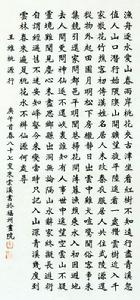 漁舟逐水愛山春兩岸桃花夾古津坐看紅樹不知遠行盡青溪不見
人山口潛行始隈隩山開曠望旋平陸遙看一處攢雲樹近入千
家散花竹樵客初傳漢姓名居人未改秦衣服居人共住武陵源還
從物外起田園月明松下房櫳靜日出雲中雞犬喧驚聞俗客爭
來集競引還家問都邑平明閭巷掃花開薄暮漁樵乘水入初因避地
去人間更問神仙遂不還峽裏誰知有人事世中遙望空雲山不疑
靈境難聞見塵心未盡思鄉縣出洞無論隔山水辭家終擬長游衍
自謂經過舊不迷安知峰壑今來變當時只記入山深青溪幾度到
雲林春來遍是桃花水不辨仙源何處尋
王維桃源行
庚午首春八十七叟雲溪書於福州畫院